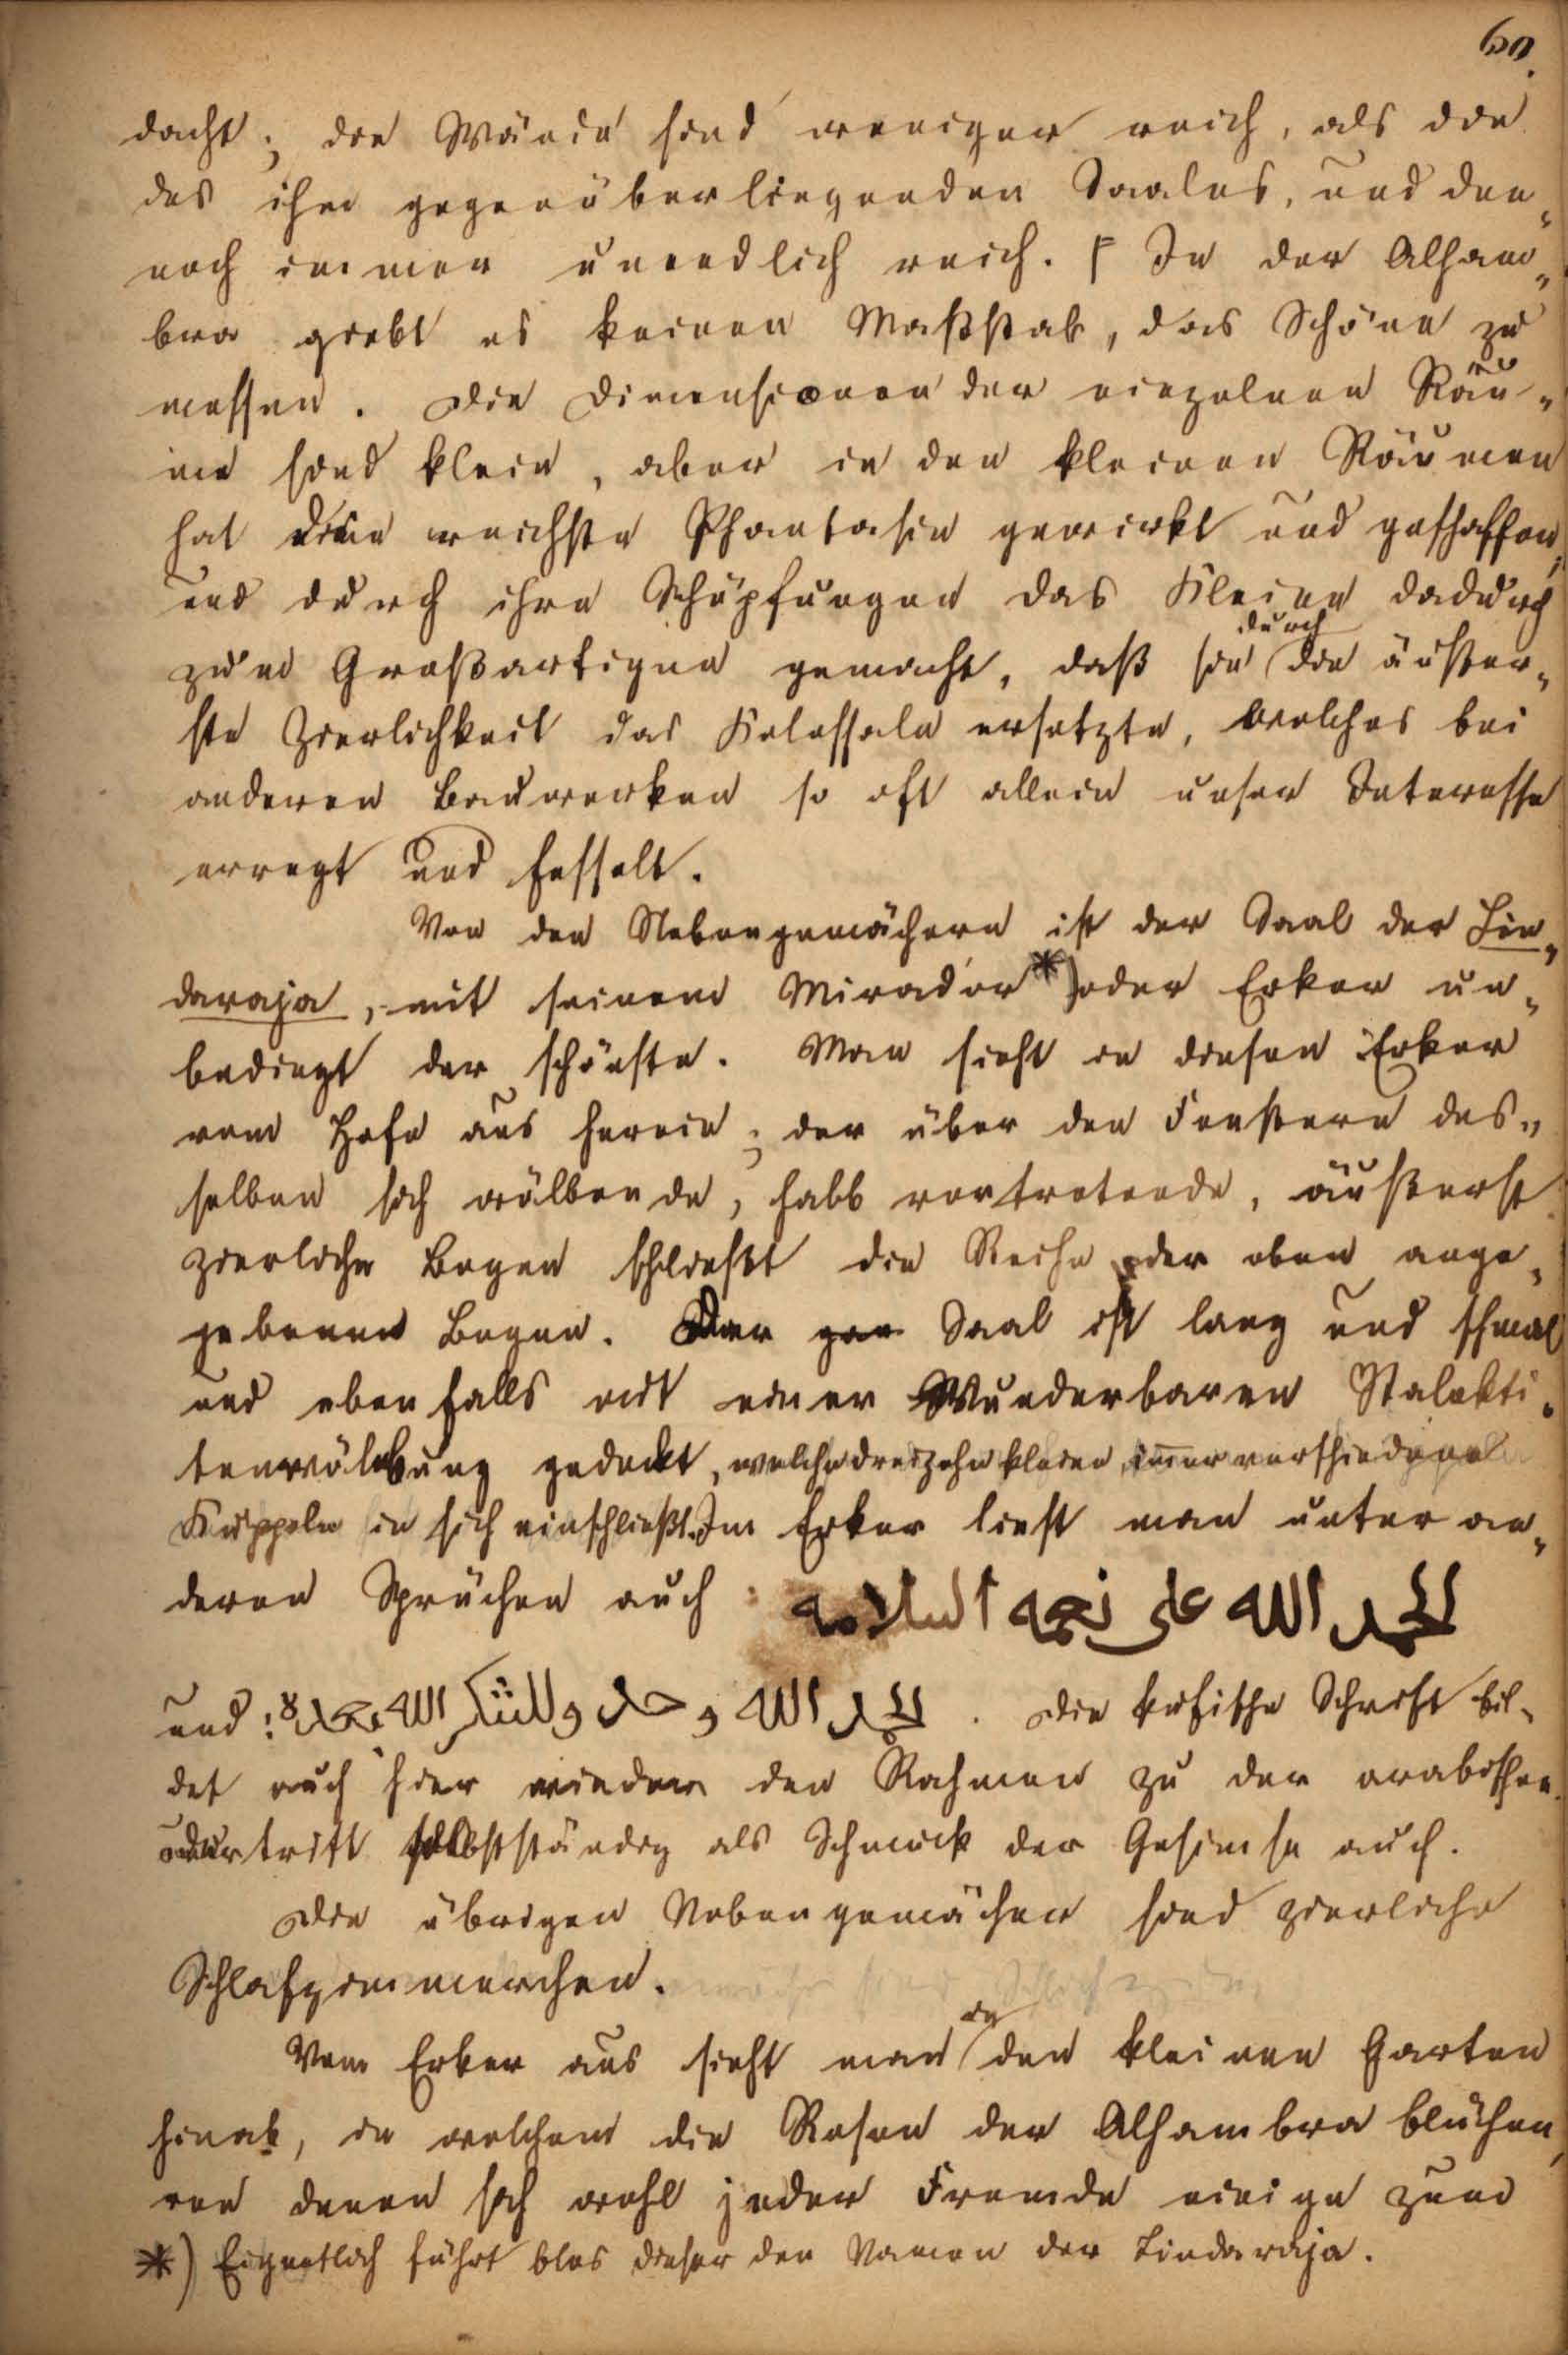 60.
dacht; die Wände sind weniger reich, als die
des ihm gegenüberliegenden Saales, und den„
noch immer unendlich reich. | In der Alham„
bra giebt es keinen Maßstab, das Schöne zu
messen. Die Dimensionen der einzelnen Räu„
me sind klein, aber in den kleinen Räumen
hat die reichste Phantasie gewirkt und geschaffen,
und durch ihre Schöpfungen das Kleine dadurch
zum Großartigen gemacht, daß sie durch die äußer„
ste Zierlichkeit das Kolossale ersetzte, welches bei
anderen Bauwerken so oft allein unser Interesse
erregt und fesselt.
Von den Nebengemächern ist der Saal der Lin„
daraja, mit seinem Mirador *) oder Erker un„
bedingt der schönste. Man sieht in diesen Erker
vom Hofe aus herein; der über den Fenstern des„
selben sich wölbende, halb vortretende, äußerst
zierliche Bogen schließt die Reihe der oben ange„
gebenen Bogen. Der Saal ist lang und schmal
und ebenfalls mit einer Wunderbaren Stalakti„
tenwölbung gedeckt, welche dreizehn kleine, immer verschiedene
Kuppeln in sich einschließt. Im Erker liest man unter an„
deren Sprüchen auch: الحمد الله على نعمه السلامه
und: الحمد الله وحده وللشكر الله بحمده. Die kufische Schrift bil„
det auch hier wieder den Rahmen zu der arabischen
oder tritt selbstständig als Schmuck der Gesimse auch.
Die übrigen Nebengemächer sind zierliche
Schlafzimmerchen.
Vom Erker aus sieht man in den kleinen Garten
hinab, in welchem die Rosen der Alhambra blühen,
von denen sich wohl jeder Fremde einige zum
*) Eigentlich führt blos dieser den Namen der Lindaraja.